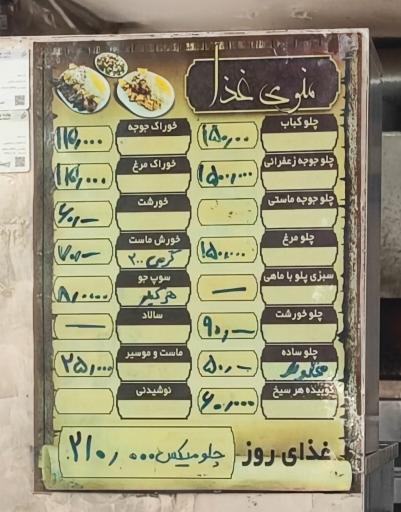 منوی غذا
چلو کباب ۱۵۰,۰۰۰
چلو جوجه زعفرانی ۱۵۰,۰۰۰
چلو جوجه ماستی
چلو مرغ ۱۵۰,۰۰۰
سبزی پلو با ماهی —
چلو خورشت ۹۰,—
چلو ساده مخلوط ۵۰,—
کوبیده هر سیخ ۶۰,۰۰۰
خوراک جوجه
خوراک مرغ
خورشت ۶۰,—
خورش ماست ۳۰۰ گرمی ۷۰,—
سوپ جو
سالاد —
ماست و موسیر ۲۵,۰۰۰
نوشیدنی
غذای روز چلو میکس ۲۱۰,۰۰۰